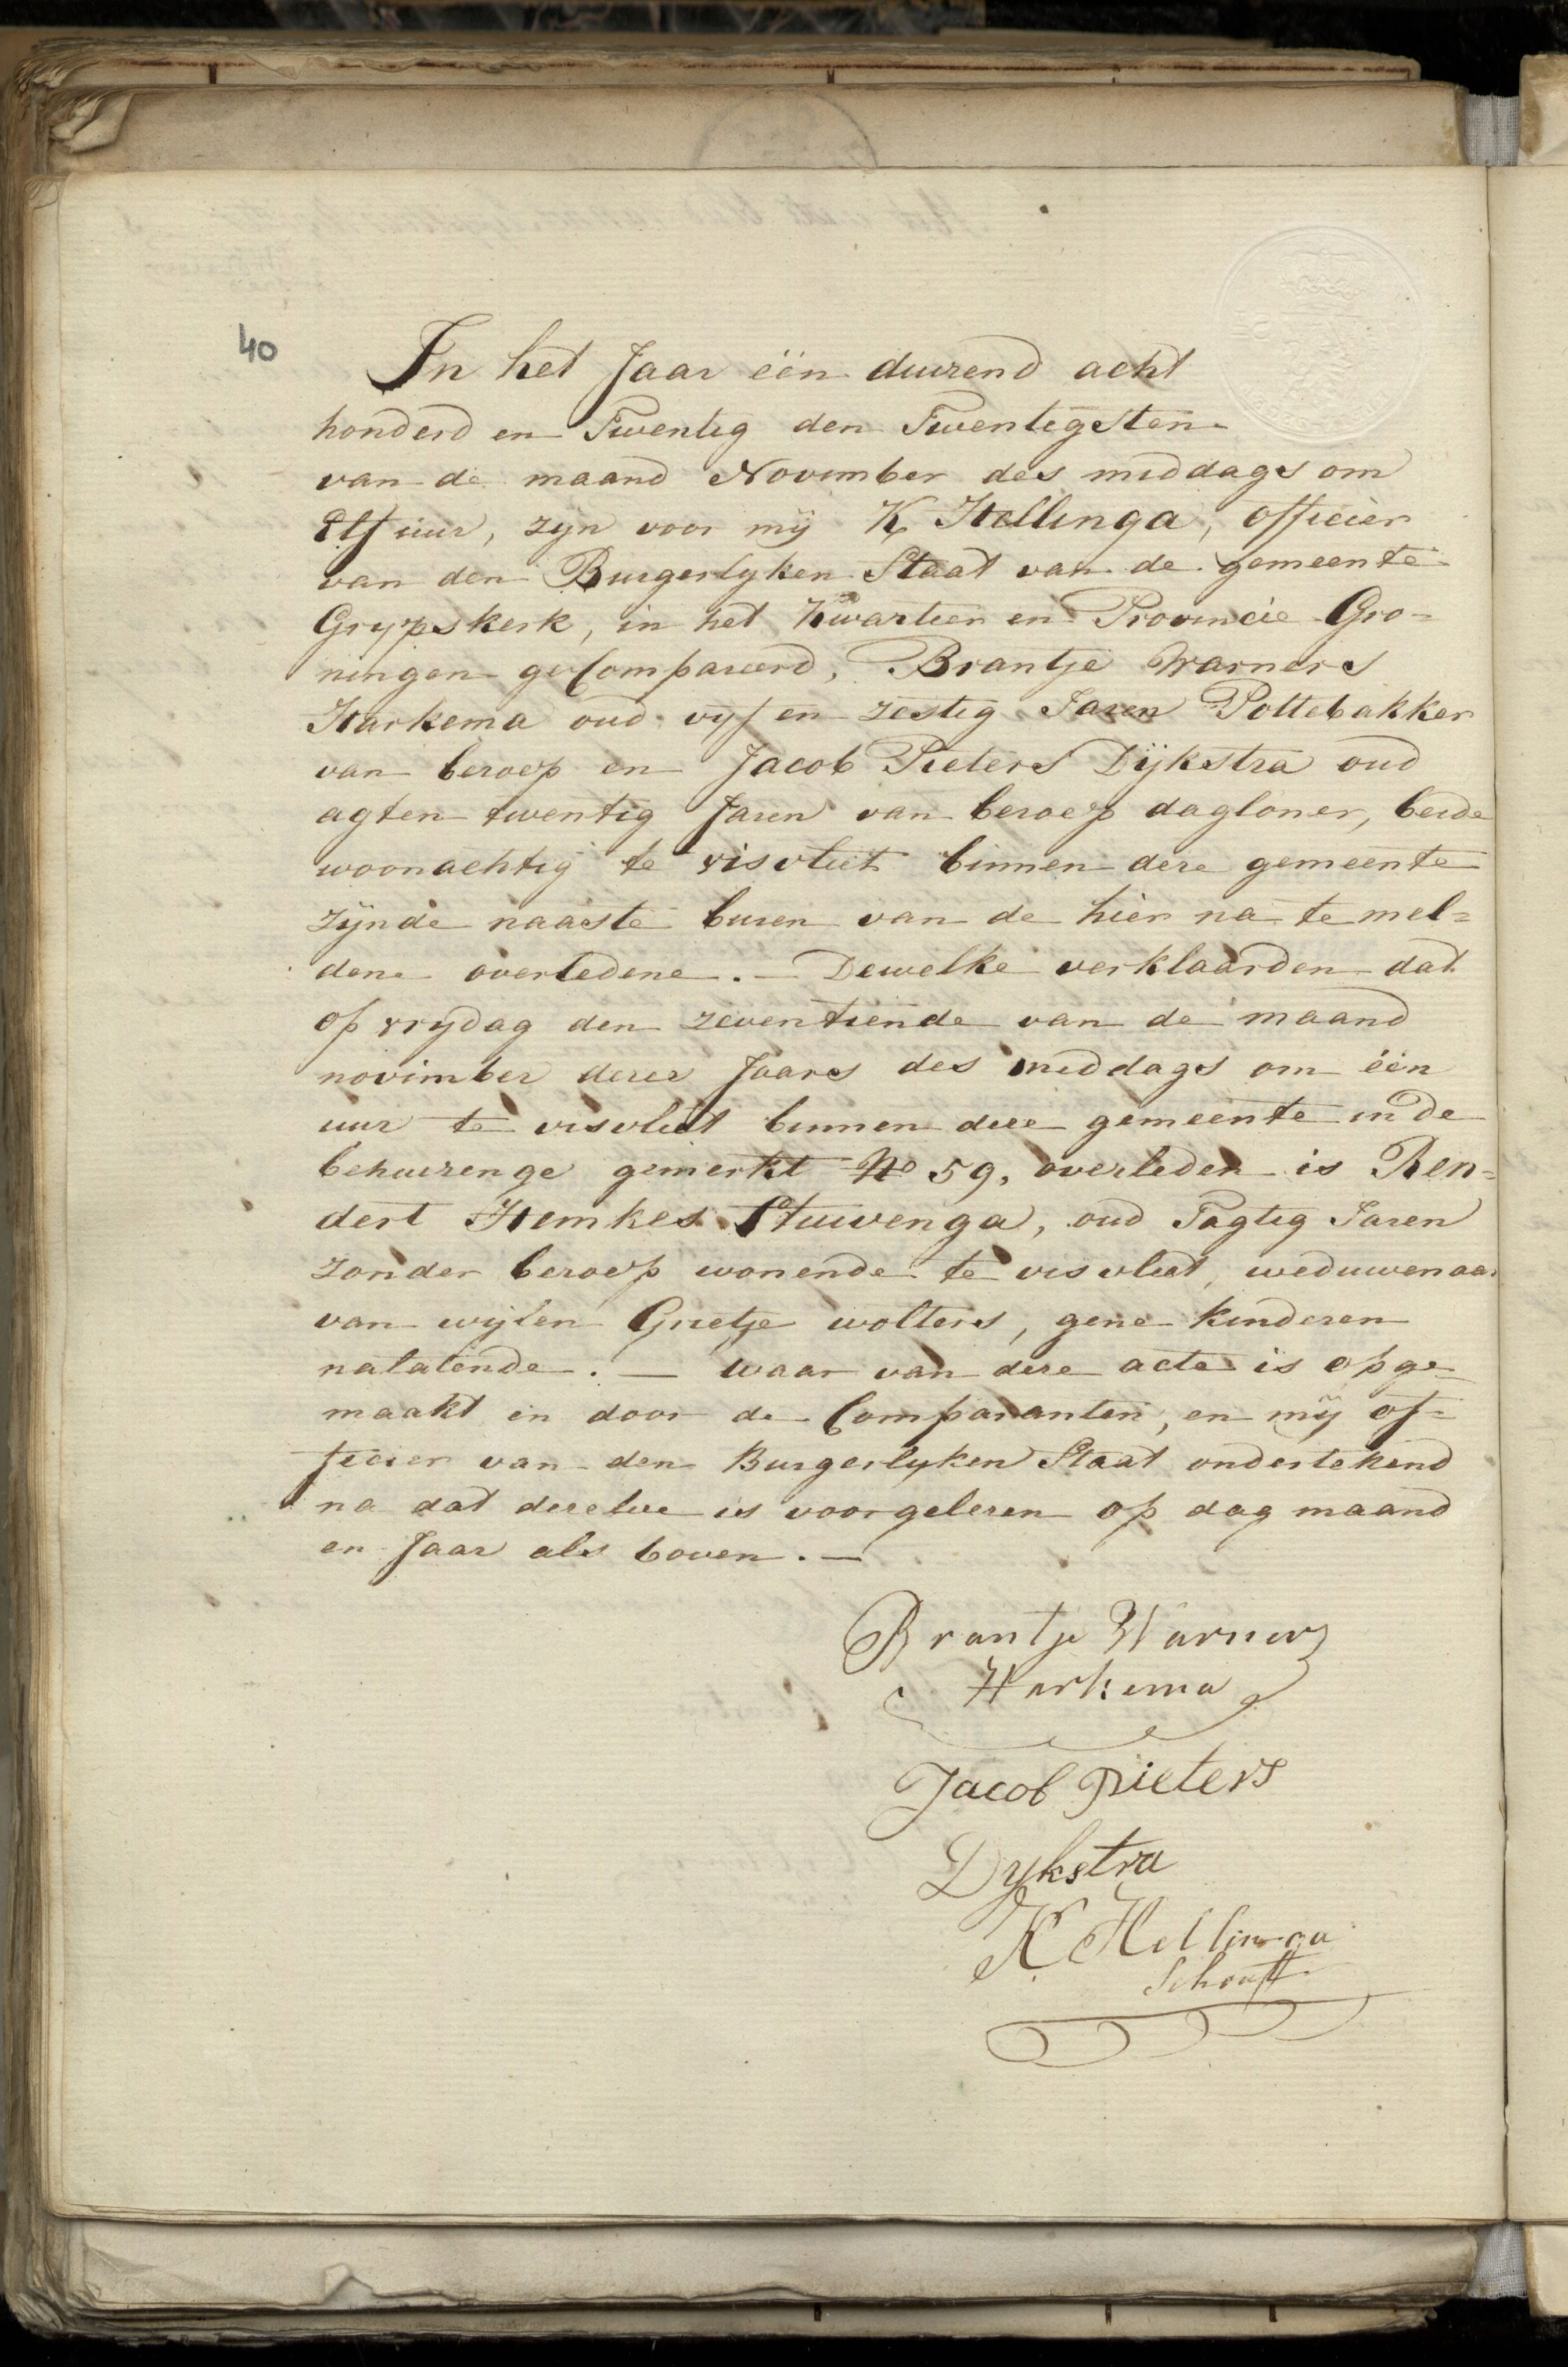 40
In het Jaar één duizend acht
honderd en Twentig den Twentigsten
van de maand November des middags om
Elf uur, zijn voor mij K Hellinga, officier
van den Burgerlyken Staat van de gemeente
Grypskerk, in het Kwartier en Provincie Gro=
ningen geCompareerd, Brantje Warners
Harkema oud vyf en zestig Jaren Pottebakker
van beroep en Jacob Pieters Dijkstra oud
agten twentig Jaren van beroep dagloner, beide
woonachtig te visvliet binnen deze gemeente
zijnde naaste buren van de hier na te mel=
dene overledene. — Dewelke verklaarden dat
op vrydag den zeventiende van de maand
november dezes Jaars des middags om één
uur te visvliet binnen deze gemeente in de
behuizenge gemerkt No 59, overleden is Ren=
dert Hemkes Stuivenga, oud Tagtig Jaren
zonder beroep wonende te visvliet, weduwenaar
van wijlen Grietje wolters, gene kinderen
nalatende. — waar van deze acte is opge=
maakt en door de Comparanten, en mij of=
ficier van den Burgerlyken Staat ondertekend
na dat dezelve is voorgelezen op dag maand
en Jaar als boven. —
Brantje Warners
Harkema
Jacob Pieters
Dykstra
K Hellinga
Schoutt